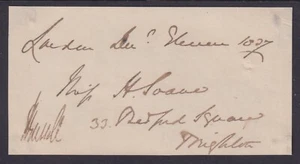 London Decr. Eleven 1837
Miss H.
33. Bedford Square
Brighton